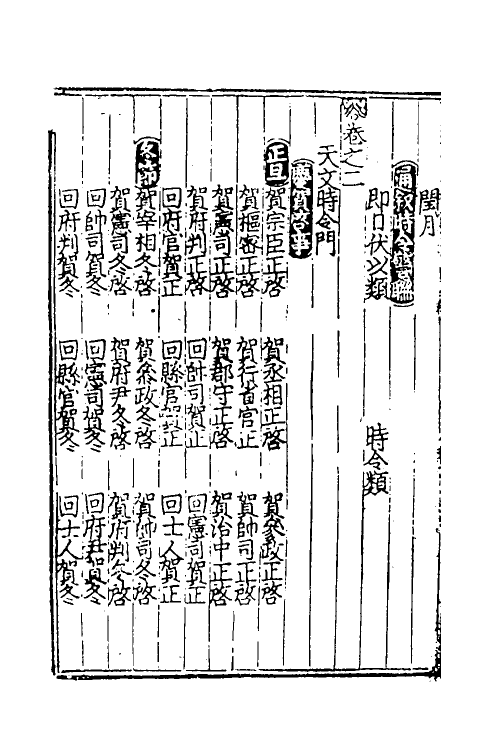 閏月
通叙時令警聯
即日伏以類　時令類
卷之二
天文時令門
慶賀啓事
正旦　賀宗臣正啓　賀丞相正啓　賀叅政正啓
賀樞密正啓　賀行省官正　賀帥司正啓
賀憲司正啓　賀郡守正啓　賀治中正啓
賀府判正啓　回帥司賀正　回憲司賀正
回府官賀正　回縣官賀正　回士人賀正
冬節　賀宰相冬啓　賀叅政冬啓　賀帥司冬啓
賀憲司冬啓　賀府尹冬啓　賀府判冬啓
回帥司賀冬　回憲司賀冬　回府尹賀冬
回府判賀冬　回縣官賀冬　回士人賀冬